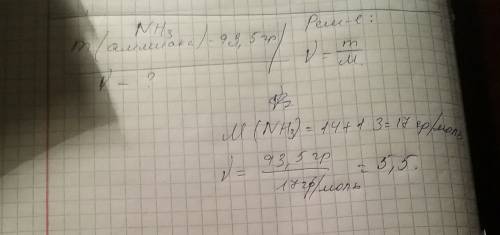 NH3
m(аммиака) - 93,5 гр
ν - ?
Реш-е:
ν = m/M
M(NH3) = 14+1·3 = 17 гр/моль
ν = 93,5 гр / 17 гр/моль = 5,5.